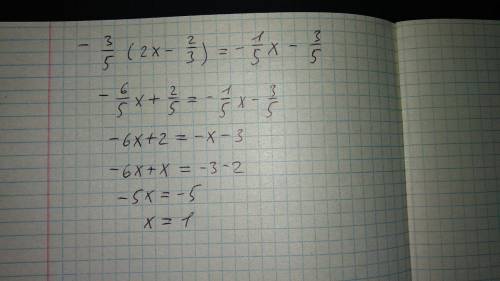 - 3/5 (2x - 2/3) = - 1/5 x - 3/5
- 6/5 x + 2/5 = - 1/5 x - 3/5
-6x+2 = -x-3
-6x+x = -3-2
-5x = -5
x = 1